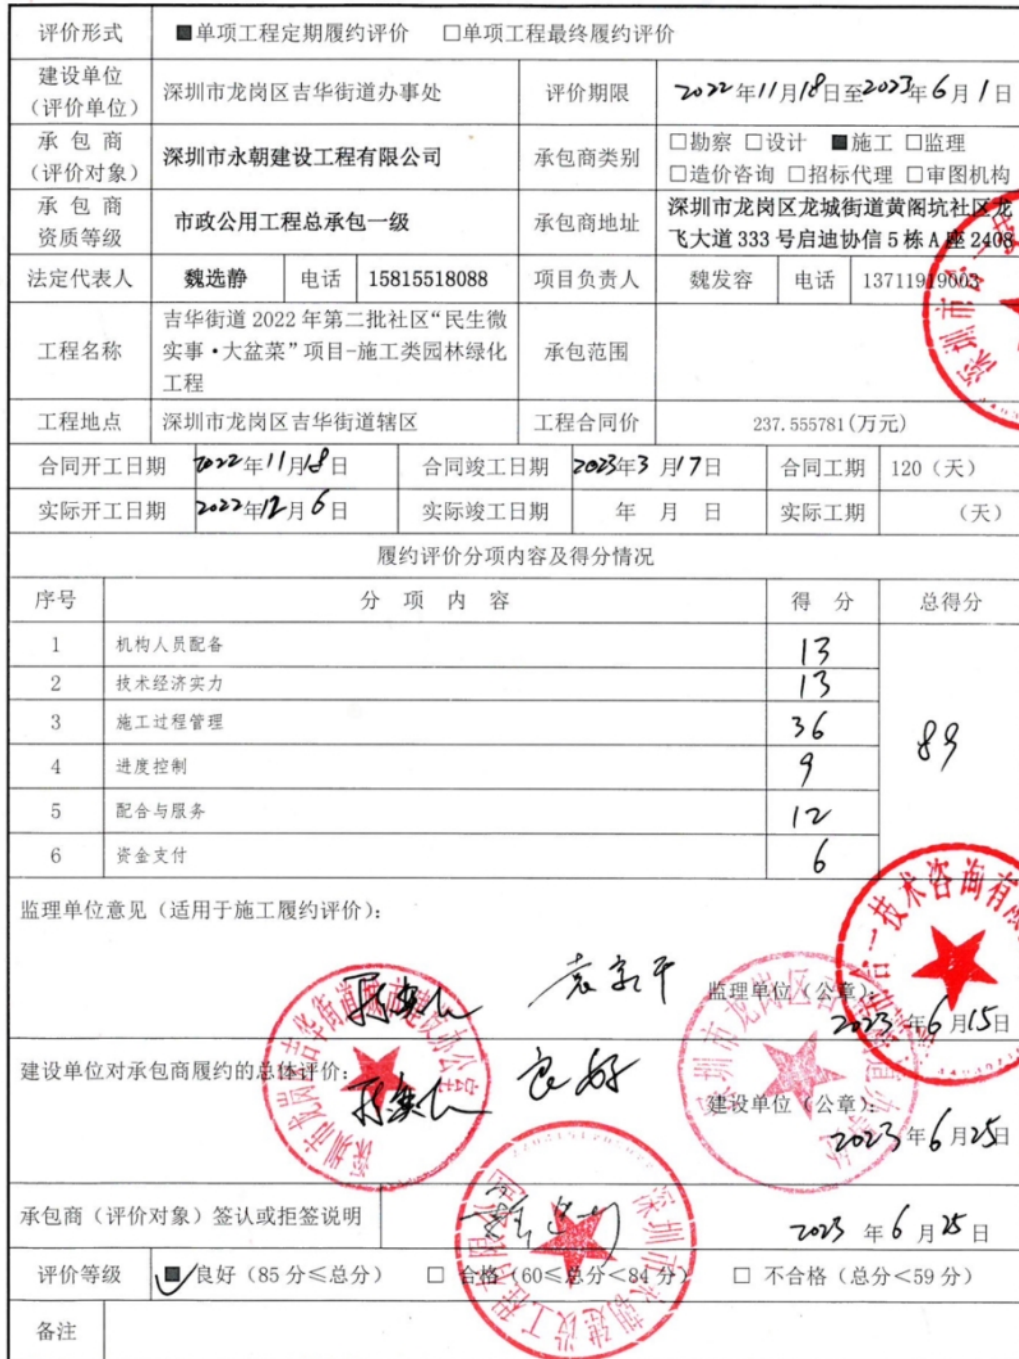 评价形式 ■单项工程定期履约评价 □单项工程最终履约评价
建设单位
（评价单位） 深圳市龙岗区吉华街道办事处 评价期限 2022年11月18日至2023年6月1日
承包商
（评价对象） 深圳市永朝建设工程有限公司 承包商类别 □勘察 □设计 ■施工 □监理
□造价咨询 □招标代理 □审图机构
承包商
资质等级 市政公用工程总承包一级 承包商地址 深圳市龙岗区龙城街道黄阁坑社区龙
飞大道333号启迪协信5栋A座2408
法定代表人 魏选静 电话 15815518088 项目负责人 魏发容 电话 13711919003
工程名称 吉华街道2022年第二批社区“民生微
实事·大盆菜”项目-施工类园林绿化
工程 承包范围
工程地点 深圳市龙岗区吉华街道辖区 工程合同价 237.555781(万元)
合同开工日期 2022年11月18日 合同竣工日期 2023年3月17日 合同工期 120（天）
实际开工日期 2022年12月6日 实际竣工日期 年 月 日 实际工期 （天）
履约评价分项内容及得分情况
序号 分项内容 得分 总得分
1 机构人员配备 13
2 技术经济实力 13
3 施工过程管理 36
89
4 进度控制 9
5 配合与服务 12
6 资金支付 6
监理单位意见（适用于施工履约评价）：
监理单位（公章）：
2023年6月15日
建设单位对承包商履约的总体评价：
良好
建设单位（公章）：
2023年6月25日
承包商（评价对象）签认或拒签说明 2023年6月25日
评价等级 ■良好（85分≤总分） □合格（60≤总分＜84分） □不合格（总分＜59分）
备注